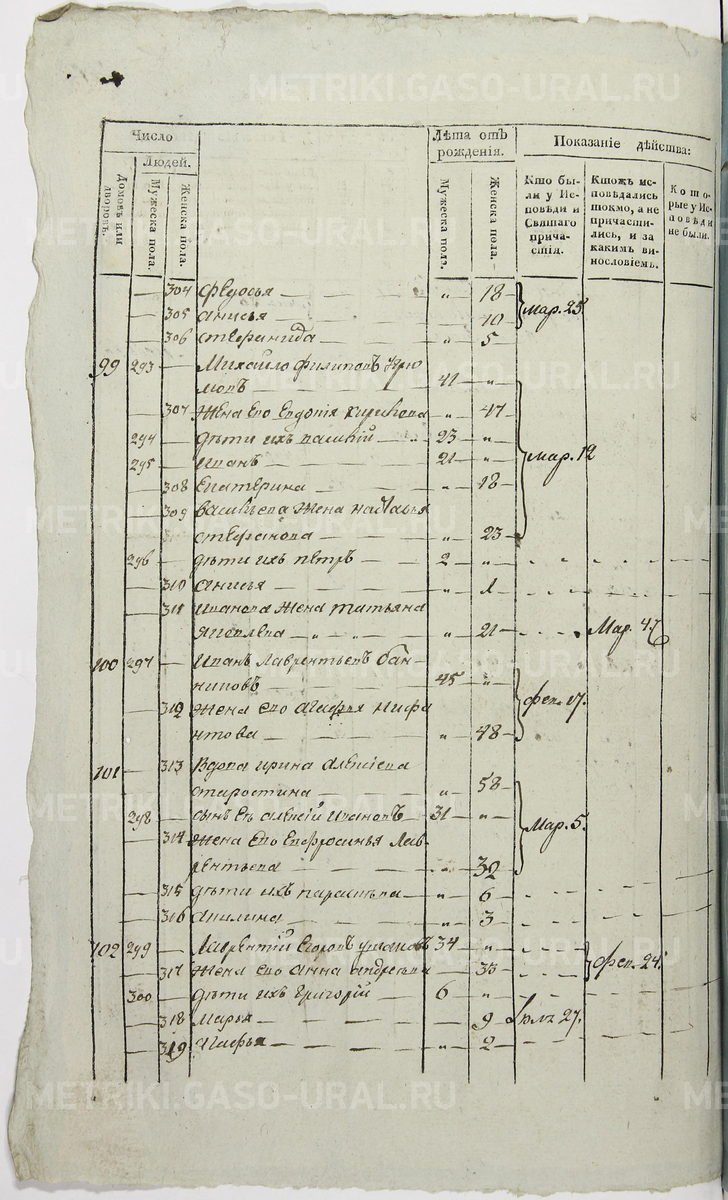 METRIKI.GASO-URAL.RU
Число
Людей.
Домовъ или дворовъ.
Мужеска пола.
Женска пола.
Лѣта отъ рожденія.
Мужеска пола.
Женска пола.
Показаніе дѣйства:
Кто бы-
ли у Ис-
повѣди и
Святаго
прича-
стія.
Ктожъ ис-
повѣдались
токмо, а не
причасти-
лись, и за
какимъ ви-
нословіемъ.
Кото-
рые у Ис-
повѣди
не были.
304 Федосья 18
305 анисья 10 Мар. 25
306 стефанида 5
99 293 Михайло филиповъ
мовъ 41
307 Жена Его Евдокія 47
294 дѣти ихъ василій 23
295 иванъ 21 Мар. 12
308 Екатерина 18
309 васильева Жена наталья
стефанова 23
296 дѣти ихъ петръ 2
310 анисья 1
311 иванова Жена татьяна
яковлева 21 Мар. 17
100 297 иванъ лаврентьевъ бан-
никовъ 45
312 жена его агафья нифа 48 фев. 17.
нтова
101 313 вдова ирина алексіева
старостина 58
298 сынъ Ея алексій ивановъ 31 Мар. 5.
314 Жена Его Ефросинья лав-
рентьева 32
315 дѣти ихъ парасковья 6
316 акилина 3
102 299 лаврентій Егоровъ ушаковъ 34
317 Жена его анна андреева 33 фев. 24.
300 дѣти ихъ григорій 6
318 Марья 9 27.
319 агафья 2
METRIKI.GASO-URAL.RU